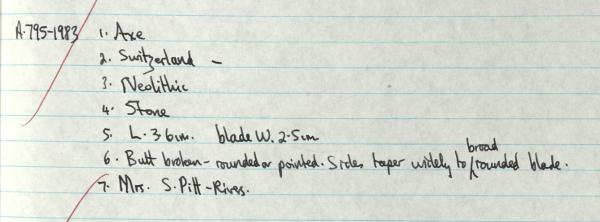 A.795-1983 1. Axe
2. Switzerland -
3. Neolithic
4. Stone
5. L. 3.6cm. blade W. 2.5cm
6. Butt broken - rounded or pointed. Sides taper widely to broad rounded blade.
7. Mrs. S. Pitt-Rivers.